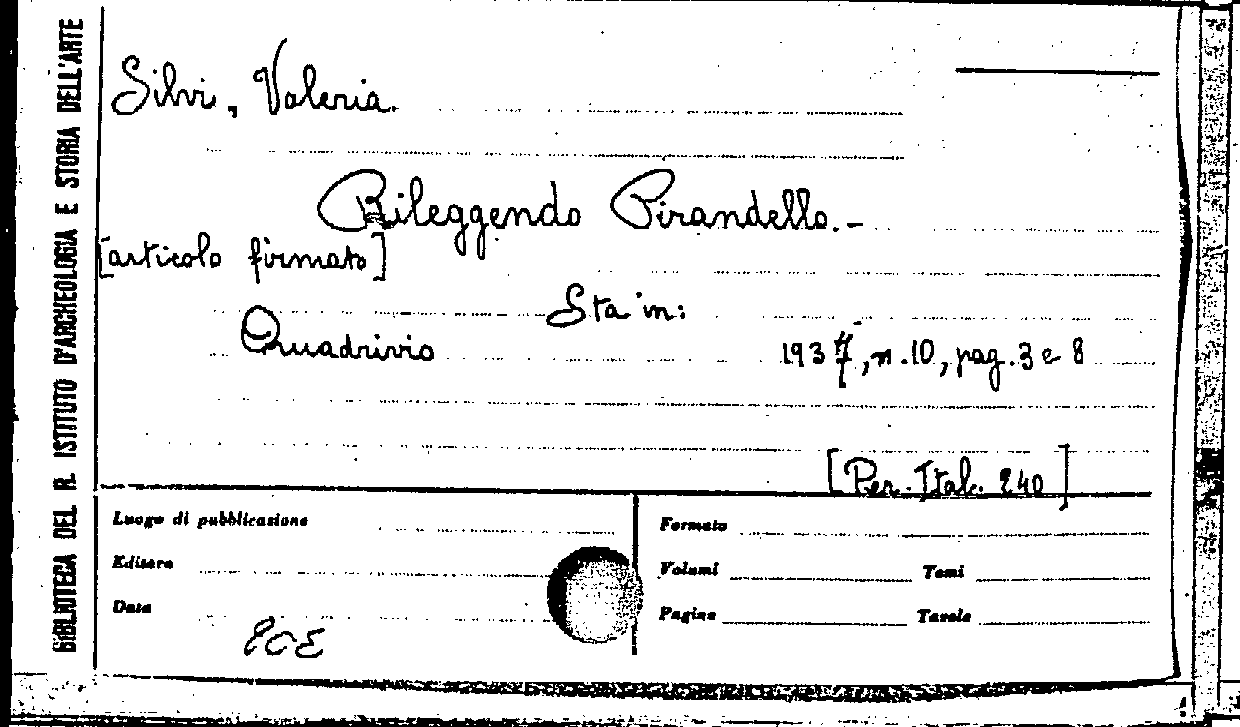 BIBLIOTECA DEL R. ISTITUTO D'ARCHEOLOGIA E STORIA DELL'ARTE
Silvi, Valeria.
Rileggendo Pirandello.-
[articolo firmato]
Sta in:
Quadrivio 1937, n.10, pag. 3 e 8
[Per. Ital. 240]
Luogo di pubblicazione
Editore
Data
Formato
Volumi Tomi
Pagine Tavole